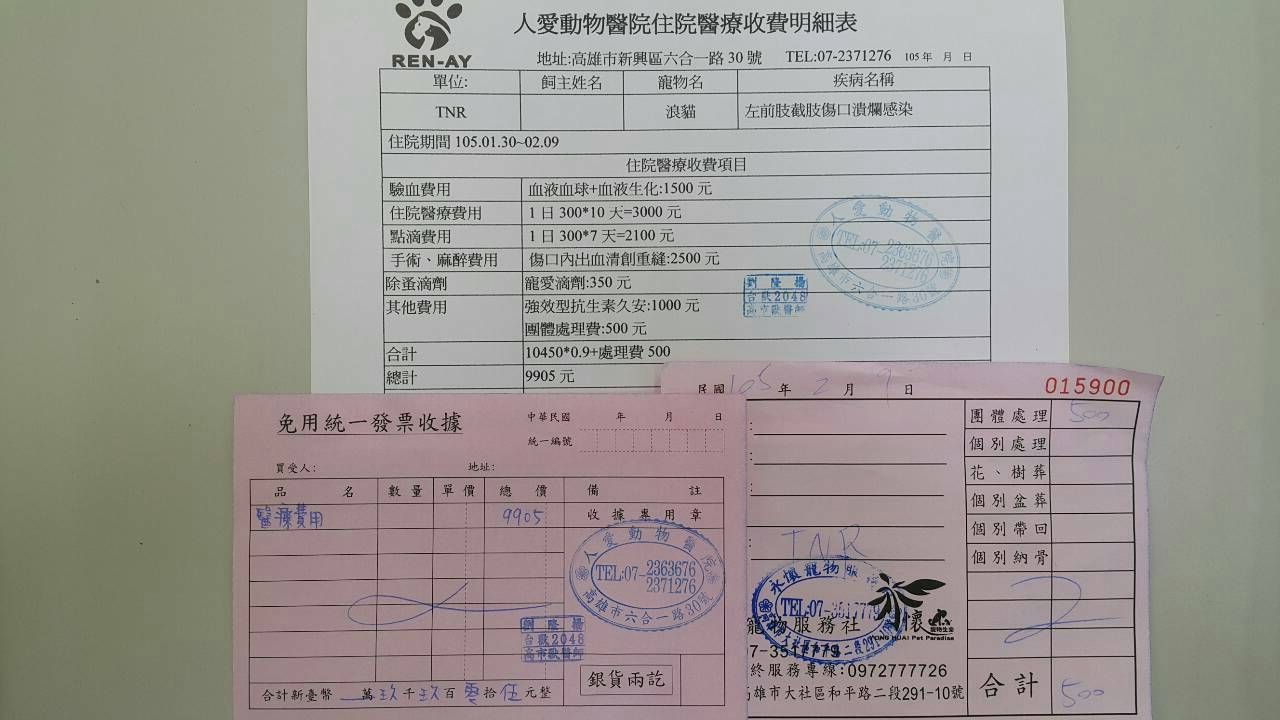 人愛動物醫院住院醫療收費明細表
REN-AY
地址:高雄市新興區六合一路30號 TEL:07-2371276 105年 月 日
單位: 飼主姓名 寵物名 疾病名稱
TNR 浪貓 左前肢截肢傷口潰爛感染
住院期間 105.01.30~02.09
住院醫療收費項目
驗血費用 血液血球+血液生化:1500元
住院醫療費用 1日300*10天=3000元
點滴費用 1日300*7天=2100元
手術、麻醉費用 傷口內出血清創重縫:2500元
除蚤滴劑 寵愛滴劑:350元
其他費用 強效型抗生素久安:1000元
團體處理費:500元
合計 10450*0.9+處理費500
總計 9905元
人愛動物醫院
TEL:07-2363676
2371276
高雄市六合一路30號
劉隆揚
台獸2048
高市獸醫師
免用統一發票收據
中華民國 年 月 日
統一編號
買受人: 地址:
品名 數量 單價 總價 備註
醫療費用 9905 收據專用章
人愛動物醫院
TEL:07-2363676
2371276
高雄市六合一路30號
劉隆揚
台獸2048
高市獸醫師
銀貨兩訖
合計新臺幣 萬玖千玖百零拾伍元整
民國105年2月9日 015900
團體處理 500
個別處理
花、樹葬
個別盆葬
個別帶回
個別納骨
TNR
永懷寵物服
TEL:07-3517779
懷
YONG HUAI Pet Paradise
寵物服務社
7-3517779
終服務專線:0972777726
高雄市大社區和平路二段291-10號
合計 500